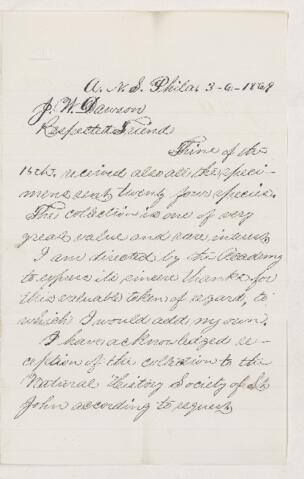 A. N. S. Phila. 3-6-1869
J. W. Dawson
Respected Friend
Thine of the
18th. received also all the speci-
mens sent twenty four species.
The collection is one of very
great value and rare interest
I am directed by the Academy
to express its sincere thanks for
this valuable token of regard, to
which I would add my own.
I have acknowledged re-
ception of the collection to the
Natural History Society of St
John according to request